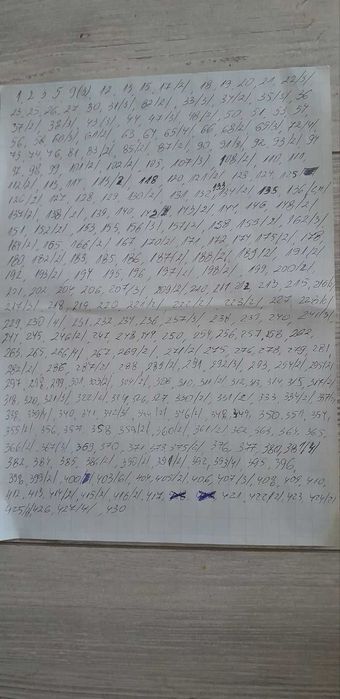 1, 2, 3, 5, 9/3/, 12, 13, 15, 17/2/, 18, 19, 20, 21, 22/3/,
23, 25, 26, 27, 30, 31/3/, 32/2/, 33/3/, 34/2/, 35/3/, 36
37/2/, 38/3/, 43/3/, 44, 47/3/, 48/2/, 50, 51, 53, 54
56, 58, 60/3/, 61/2/, 63, 64, 65/4/, 66, 68/2/, 69/3/, 72/4/,
73, 74, 76, 81, 83/2/, 85/2/, 87/2/, 90, 91/3/, 92, 93/2/, 94
97, 98, 99, 101/2/, 102/2/, 105, 107/3/, 108/2/, 110, 111,
112/2/, 113, 114, 115/2/, 118, 120, 121/2/, 123, 124, 125
126/2/, 127, 128, 129, 130/2/, 131, 132, 133, 134/2/, 135, 136/2/
137/2/, 138/2/, 139, 140, 142, 143/2/, 144, 146, 148/2/,
151, 152/2/, 153, 155, 156/3/, 157/2/, 158, 159/2/, 162/3/
164/2/, 165, 166/2/, 167, 170/2/, 171, 172, 174, 175/2/, 178,
180, 182/2/, 183, 185, 186, 187/2/, 188/2/, 189/2/, 191/2/
192, 193/2/, 194, 195, 196, 197/2/, 198/2/, 199, 200/2/,
201, 202, 204, 206, 207/3/, 209/2/, 210, 211, 212, 213, 215, 216
217/3/, 218, 219, 220, 221/2/, 222/2/, 223/3/, 227,
229, 230/4/, 231, 232, 234, 236, 237/3/, 238, 239, 240, 241/3/
244, 245, 246/2/, 247, 248, 249, 250, 254, 256, 257, 258, 262,
263, 265, 266/4/, 267, 269/2/, 271/2/, 275, 276, 278, 279, 281,
282/2/, 286, 287/2/, 288, 289/2/, 291, 292/3/, 293, 294/2/, 295/2/
297, 298, 299, 301, 303/2/, 304/2/, 308, 310, 311/2/, 312, 313, 314, 315, 317/2/
318, 320, 321/3/, 322/2/, 324, 326, 327, 330/2/, 331/2/, 333, 334/2/, 337/
338, 339/4/, 340, 341, 342/3/, 344/2/, 346/2/, 348, 349, 350, 351, 354,
355/2/, 356, 357, 358, 359/2/, 360/2/, 361/2/, 362, 363, 364, 365,
366/2/, 367/3/, 369, 370, 371, 373, 375/2/, 376, 377, 380, 381/4/
382, 384, 385, 386/2/, 390/2/, 391/2/, 392, 393/4/, 395, 396,
398, 399/2/, 400, 403/6/, 404, 405/2/, 406, 407/3/, 408, 409, 410,
411, 413, 414/2/, 415/2/, 416/2/, 417, 421, 422/2/, 423, 424/2/
425/2/, 426, 427/4/, 430